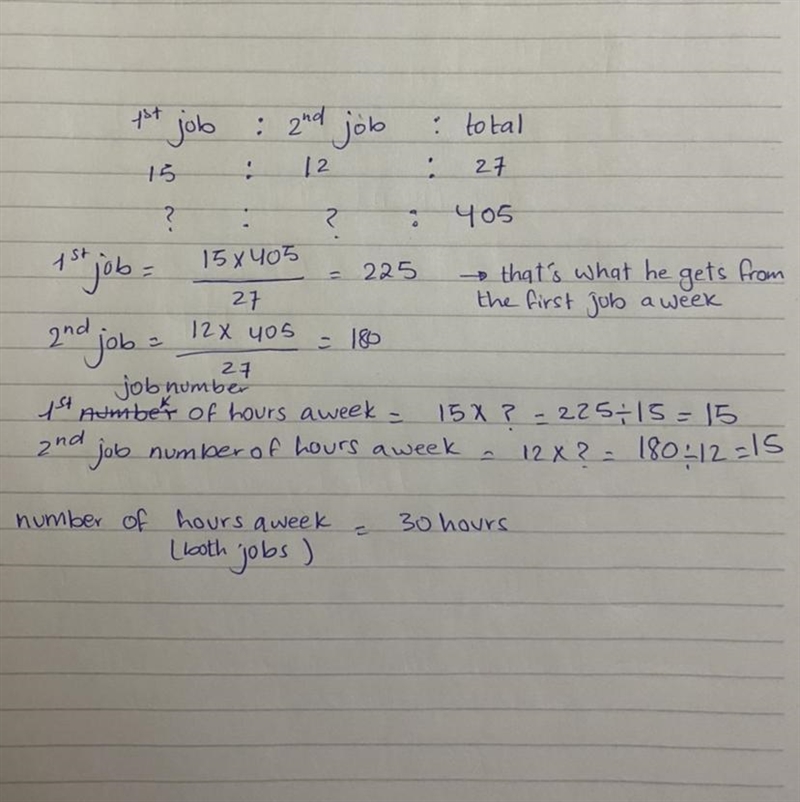 1st job : 2nd job : total
15 : 12 : 27
? : ? : 405
1st job = 15 x 405 / 27 = 225 → that's what he gets from
the first job a week
2nd job = 12 x 405 / 27 = 180
job number
1st number of hours aweek = 15 x ? = 225 ÷ 15 = 15
2nd job number of hours aweek = 12 x ? = 180 ÷ 12 = 15
number of hours aweek = 30 hours
(both jobs)